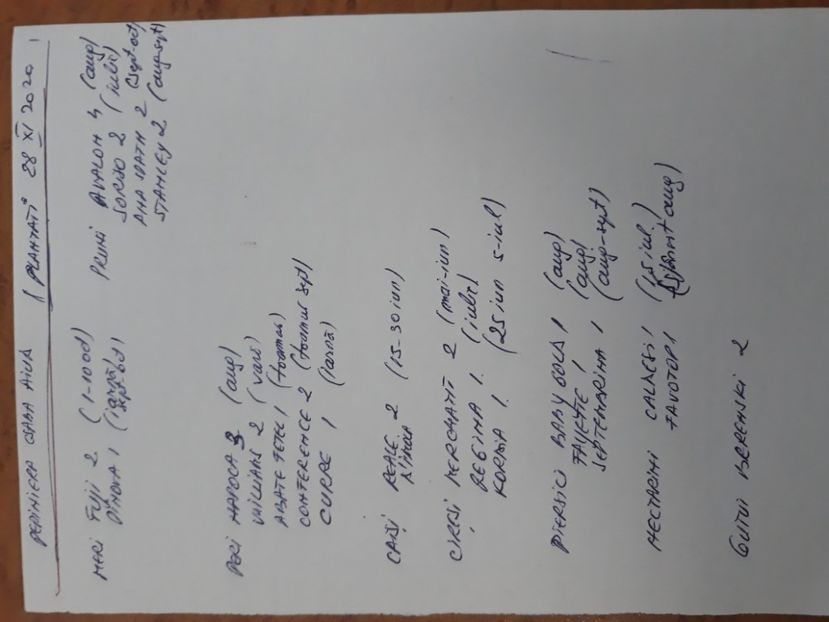 PEPINIERA CSABA AIUD (PLANTATI 28 XI 2020)
MERI FUJI 2 (1-10 oct)
PINOVA 1 (iarnă) sept-oct
PRUNI AVALON 4 (aug)
SORISO 2 (iulie)
ANA SPATH 2 (sept-oct)
STANLEY 2 (aug-sept)
PERI NAPOCA 3 (aug)
WILLIAMS 2 (vară)
ABATE FETEL 1 (toamnă)
CONFERENCE 2 (toamnă sept)
CURRE 1 (iarnă)
CAIȘI REALE 2 (15-30 iun)
CIREȘI MERCHANT 2 (mai-iun)
REGINA 1 (iulie)
KORDIA 1 (25 iun 5-iul)
PIERSICI BABY GOLD 1 (aug)
FAYETTE 1 (aug)
SEPTEMBRINA 1 (aug-sept)
NECTARINI CALDESI 1 (15 iul)
FAVOTOP 1 aug)
GUTUI BEREŃSKI 2